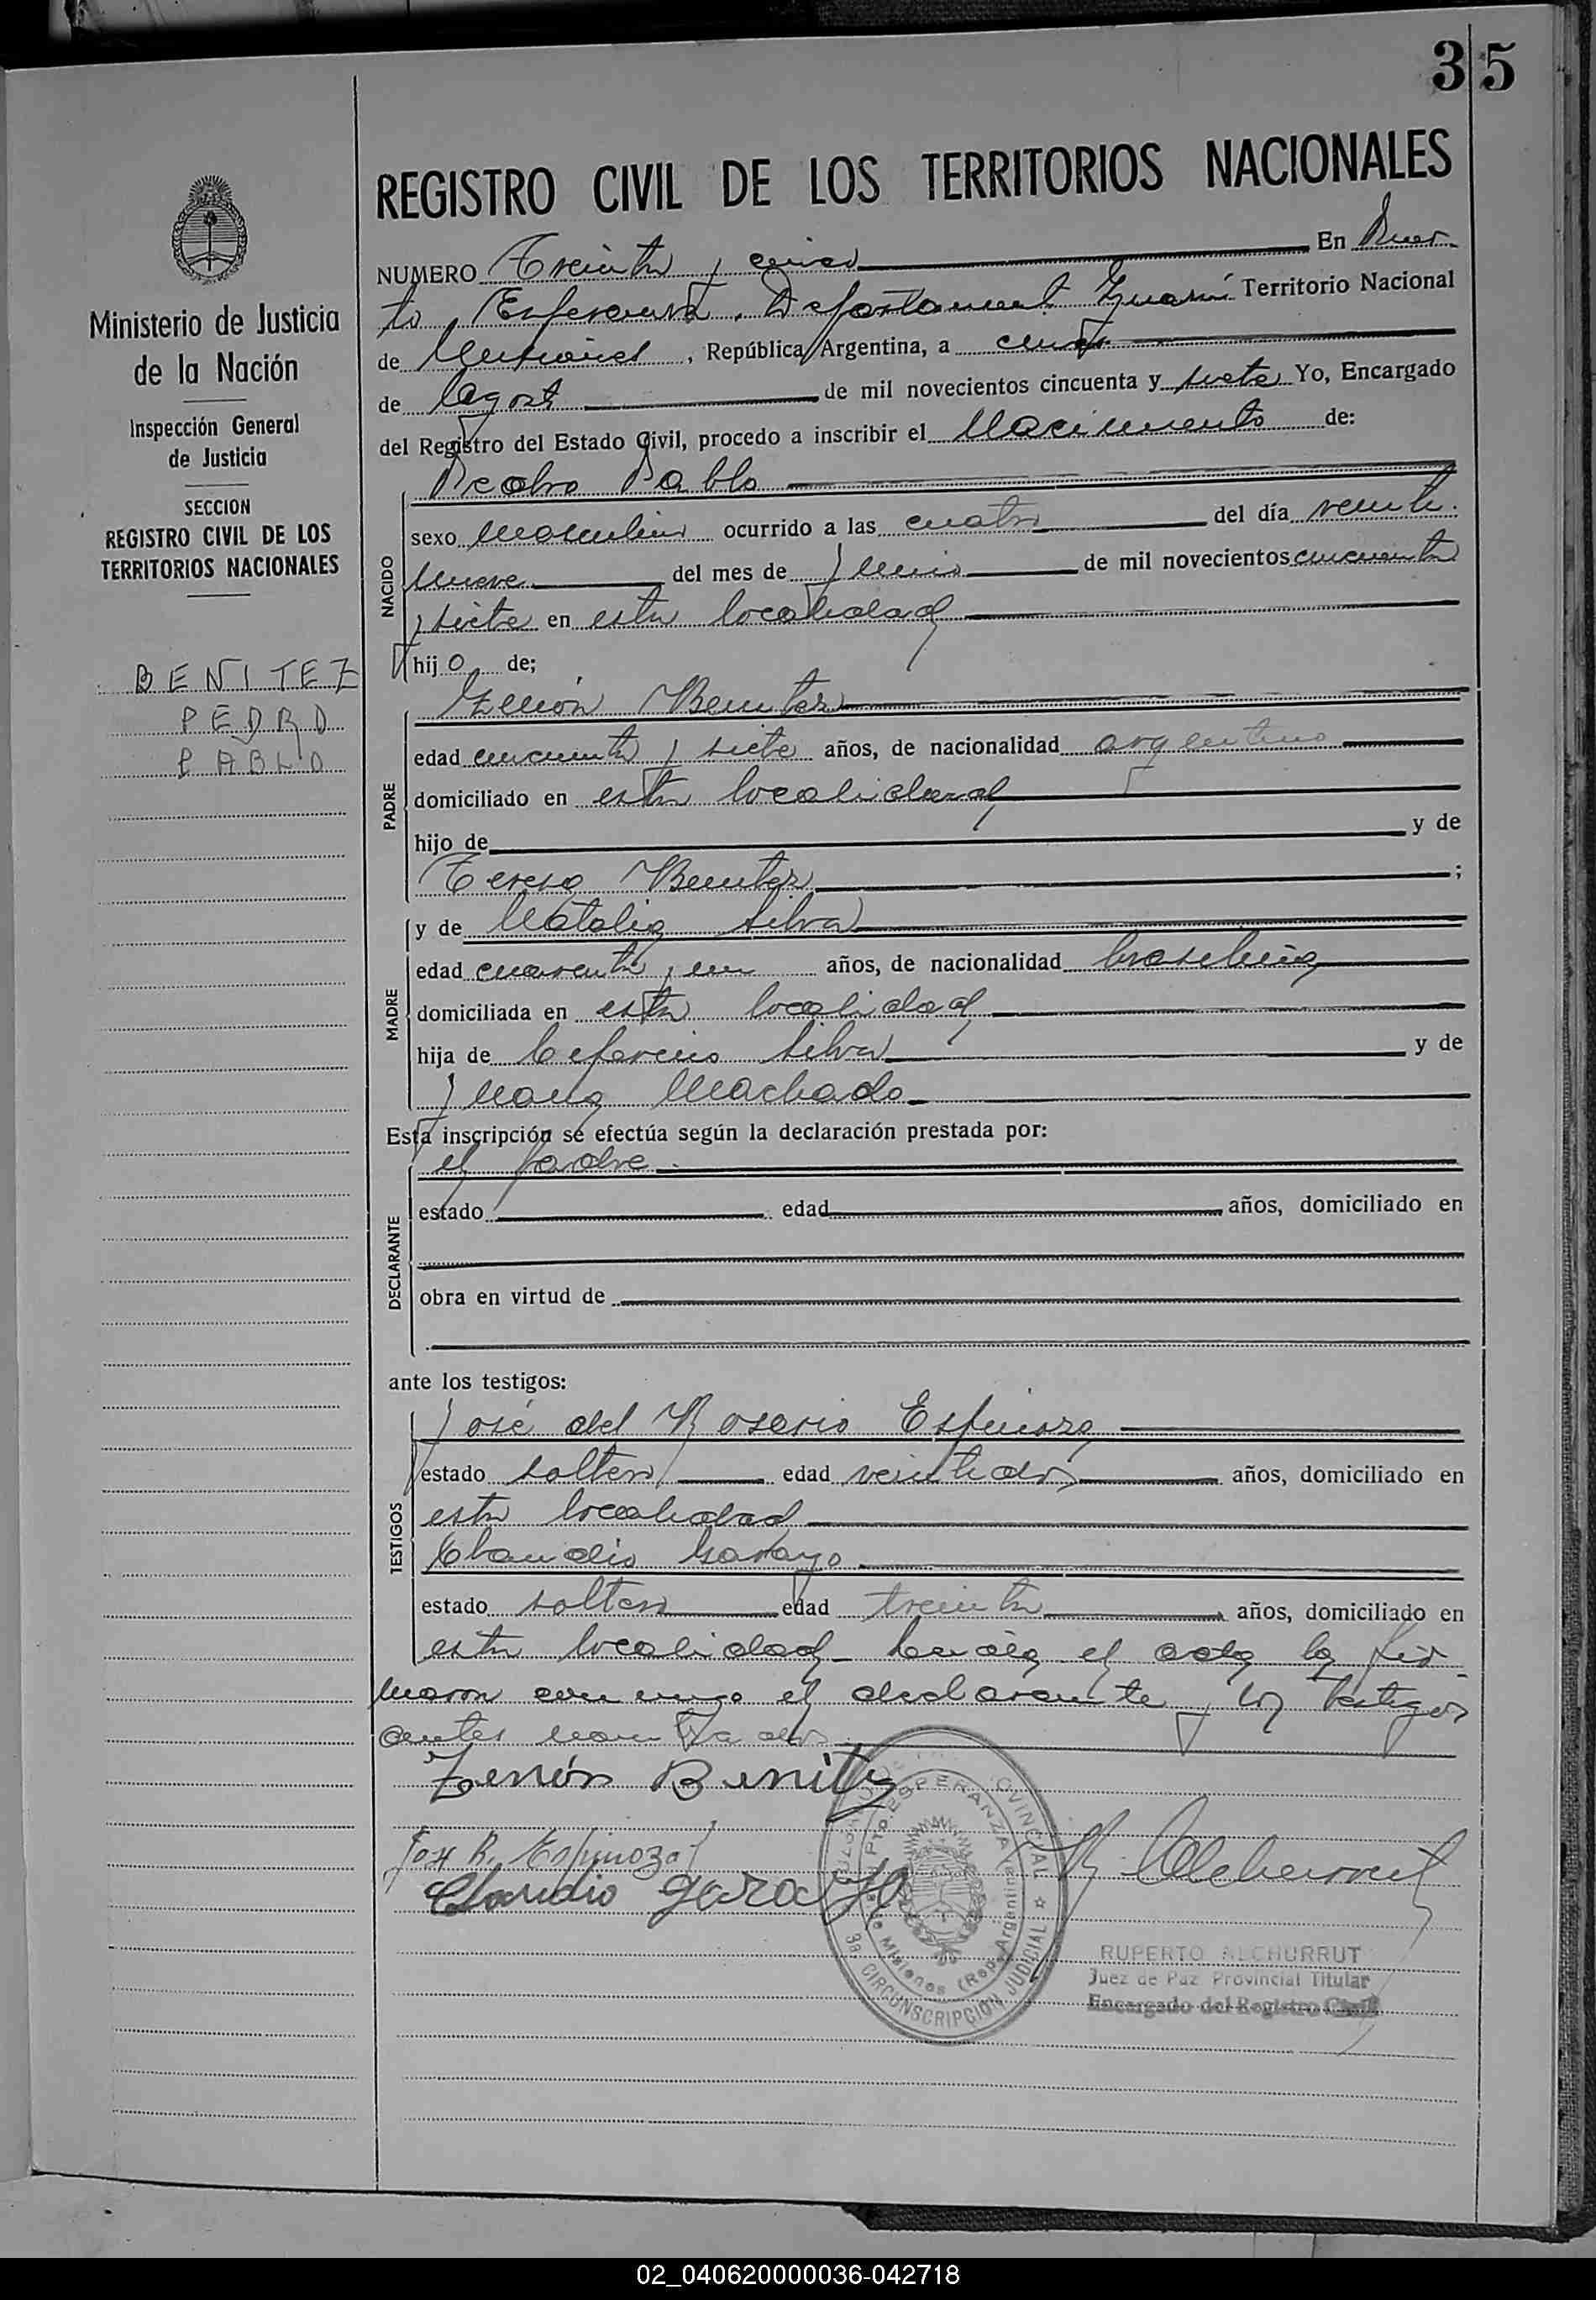 35
REGISTRO CIVIL DE LOS TERRITORIOS NACIONALES
NUMERO Treinta y cinco En Puer
to Esperanza, Departament Territorio Nacional
de Misiones, República Argentina, a
de Agosto de mil novecientos cincuenta y siete Yo, Encargado
del Registro del Estado Civil, procedo a inscribir el Nacimiento de:
Pedro Pablo
NACIDO
sexo Masculino ocurrido a las cuatro del día veinti
nueve del mes de Junio de mil novecientos cincuenta
y siete en esta localidad
hijo de;
PADRE
Zenón Benitez
edad cincuenta y siete años, de nacionalidad argentino
domiciliado en esta localidad
hijo de y de
Teresa Benitez ;
MADRE
y de Natalia Silva
edad cuarenta y un años, de nacionalidad brasileña
domiciliada en esta localidad
hija de Ceferino Silva y de
Juana Machado
Esta inscripción se efectúa según la declaración prestada por:
DECLARANTE
el padre
estado edad años, domiciliado en
obra en virtud de
ante los testigos:
TESTIGOS
José del Rosario Espinoza
estado soltero edad veintidos años, domiciliado en
esta localidad
Claudio Garayo
estado soltero edad treinta años, domiciliado en
esta localidad - Leida el acta la fir
maron conmigo el declarante y los testigos
antes nombrados
Zenón Benitez
José R. Espinoza
Claudio garayo
R. Alchurrut
Pto. ESPERANZA
Misiones (Rep. Argentina)
3a. CIRCUNSCRIPCIÓN JUDICIAL
RUPERTO ALCHURRUT
Juez de Paz Provincial Titular
Encargado del Registro Civil
Ministerio de Justicia
de la Nación
Inspección General
de Justicia
SECCION
REGISTRO CIVIL DE LOS
TERRITORIOS NACIONALES
BENITEZ
PEDRO
PABLO
02_040620000036-042718